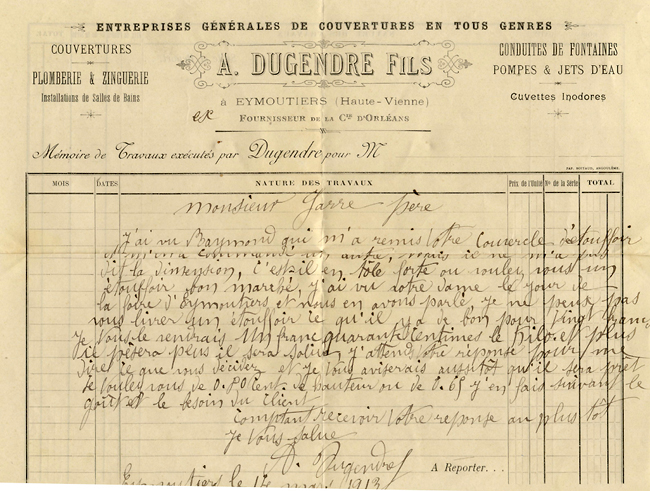 ENTREPRISES GÉNÉRALES DE COUVERTURES EN TOUS GENRES
COUVERTURES
PLOMBERIE & ZINGUERIE
Installations de Salles de Bains
A. DUGENDRE FILS
à EYMOUTIERS (Haute-Vienne)
ex FOURNISSEUR DE LA Cie D'ORLÉANS
CONDUITES DE FONTAINES
POMPES & JETS D'EAU
Cuvettes Inodores
Mémoire de Travaux exécutés par Dugendre pour M
MOIS DATES NATURE DES TRAVAUX Prix de l'Unité Nos de la Série TOTAL
Monsieur Jarre père
J'ai vu Raymond qui m'a remis votre couvercle d'étouffoir
m'a commandé un autre, mais il ne m'a pas
dit la dimension, c'est il en tôle forte ou voulez vous un
étouffoir bon marché, j'ai vu votre dame le jour de
la foire d'Eymoutiers et nous en avons parlé je ne peux pas
vous livrer un étouffoir ce qu'il y a de bon pour vingt francs
Je vous le vendrais un franc quarante centimes le kilo, et plus
il pèsera plus il sera solide j'attend votre réponse pour me
dire ce que vous décidez et je vous aviserais aussitôt qu'il sera prêt
le voulez vous de 0.80 cent. de hauteur ou de 0.65 j'en fais suivant le
goût et le besoin du client
comptant recevoir votre reponse au plus tôt
Je vous salue
A. Dugendre
A Reporter...
Eymoutiers le 17 mars 1913